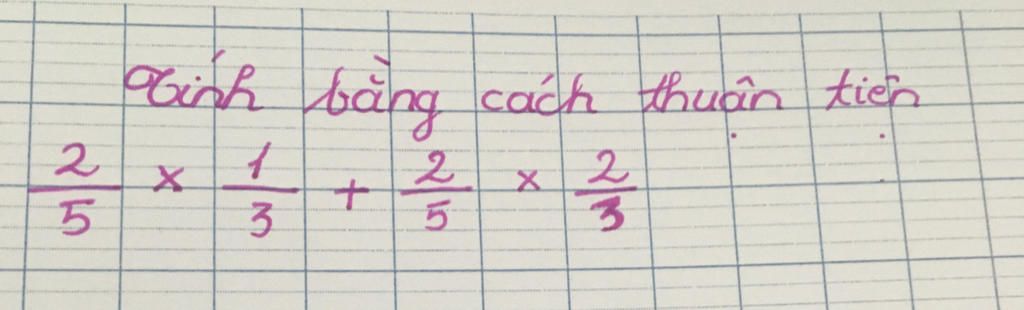 Tính bằng cách thuận tiện
2/5 × 1/3 + 2/5 × 2/3